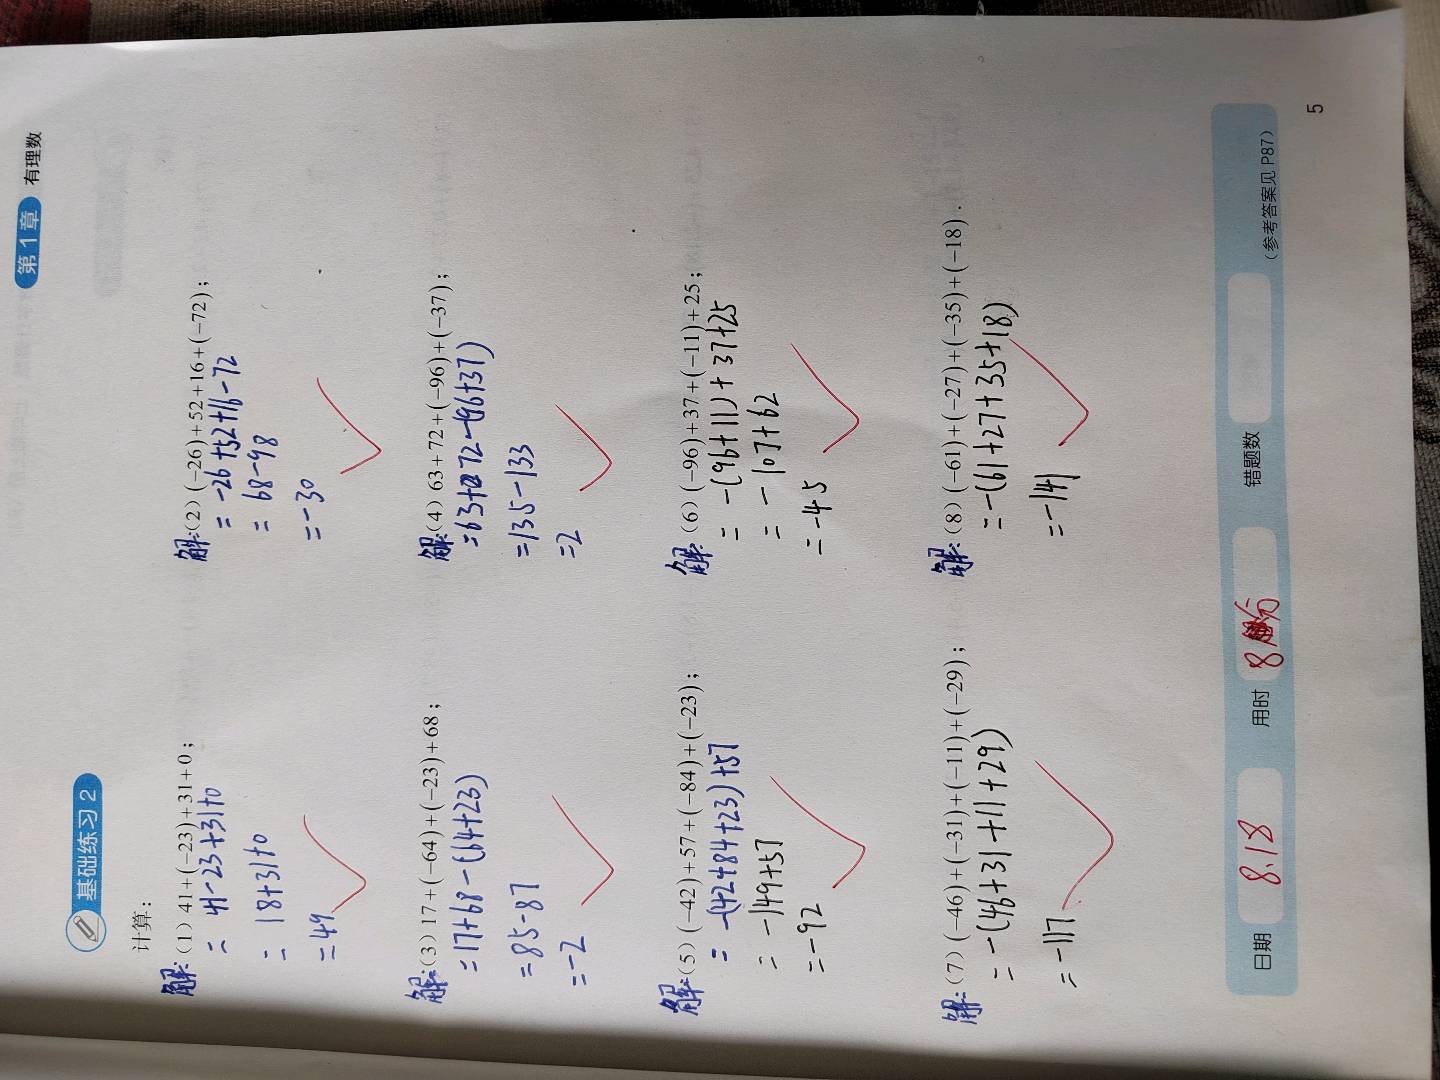 第1章 有理数
基础练习 2
计算：
解:(1) 41+(−23)+31+0；
= 41-23+31+0
= 18+31+0
=49
解:(2) (−26)+52+16+(−72)；
= -26+52+16-72
= 68-98
=-30
解:(3) 17+(−64)+(−23)+68；
=17+68-(64+23)
=85-87
=-2
解:(4) 63+72+(−96)+(−37)；
=63+72-(96+37)
=135-133
=2
解:(5) (−42)+57+(−84)+(−23)；
= -(42+84+23)+57
= -149+57
=-92
解:(6) (−96)+37+(−11)+25；
= -(96+11)+37+25
= -107+62
=-45
解:(7) (−46)+(−31)+(−11)+(−29)；
=-(46+31+11+29)
=-117
解:(8) (−61)+(−27)+(−35)+(−18).
=-(61+27+35+18)
=-141
日期 8.18 用时 8分 错题数
（参考答案见 P87）
5